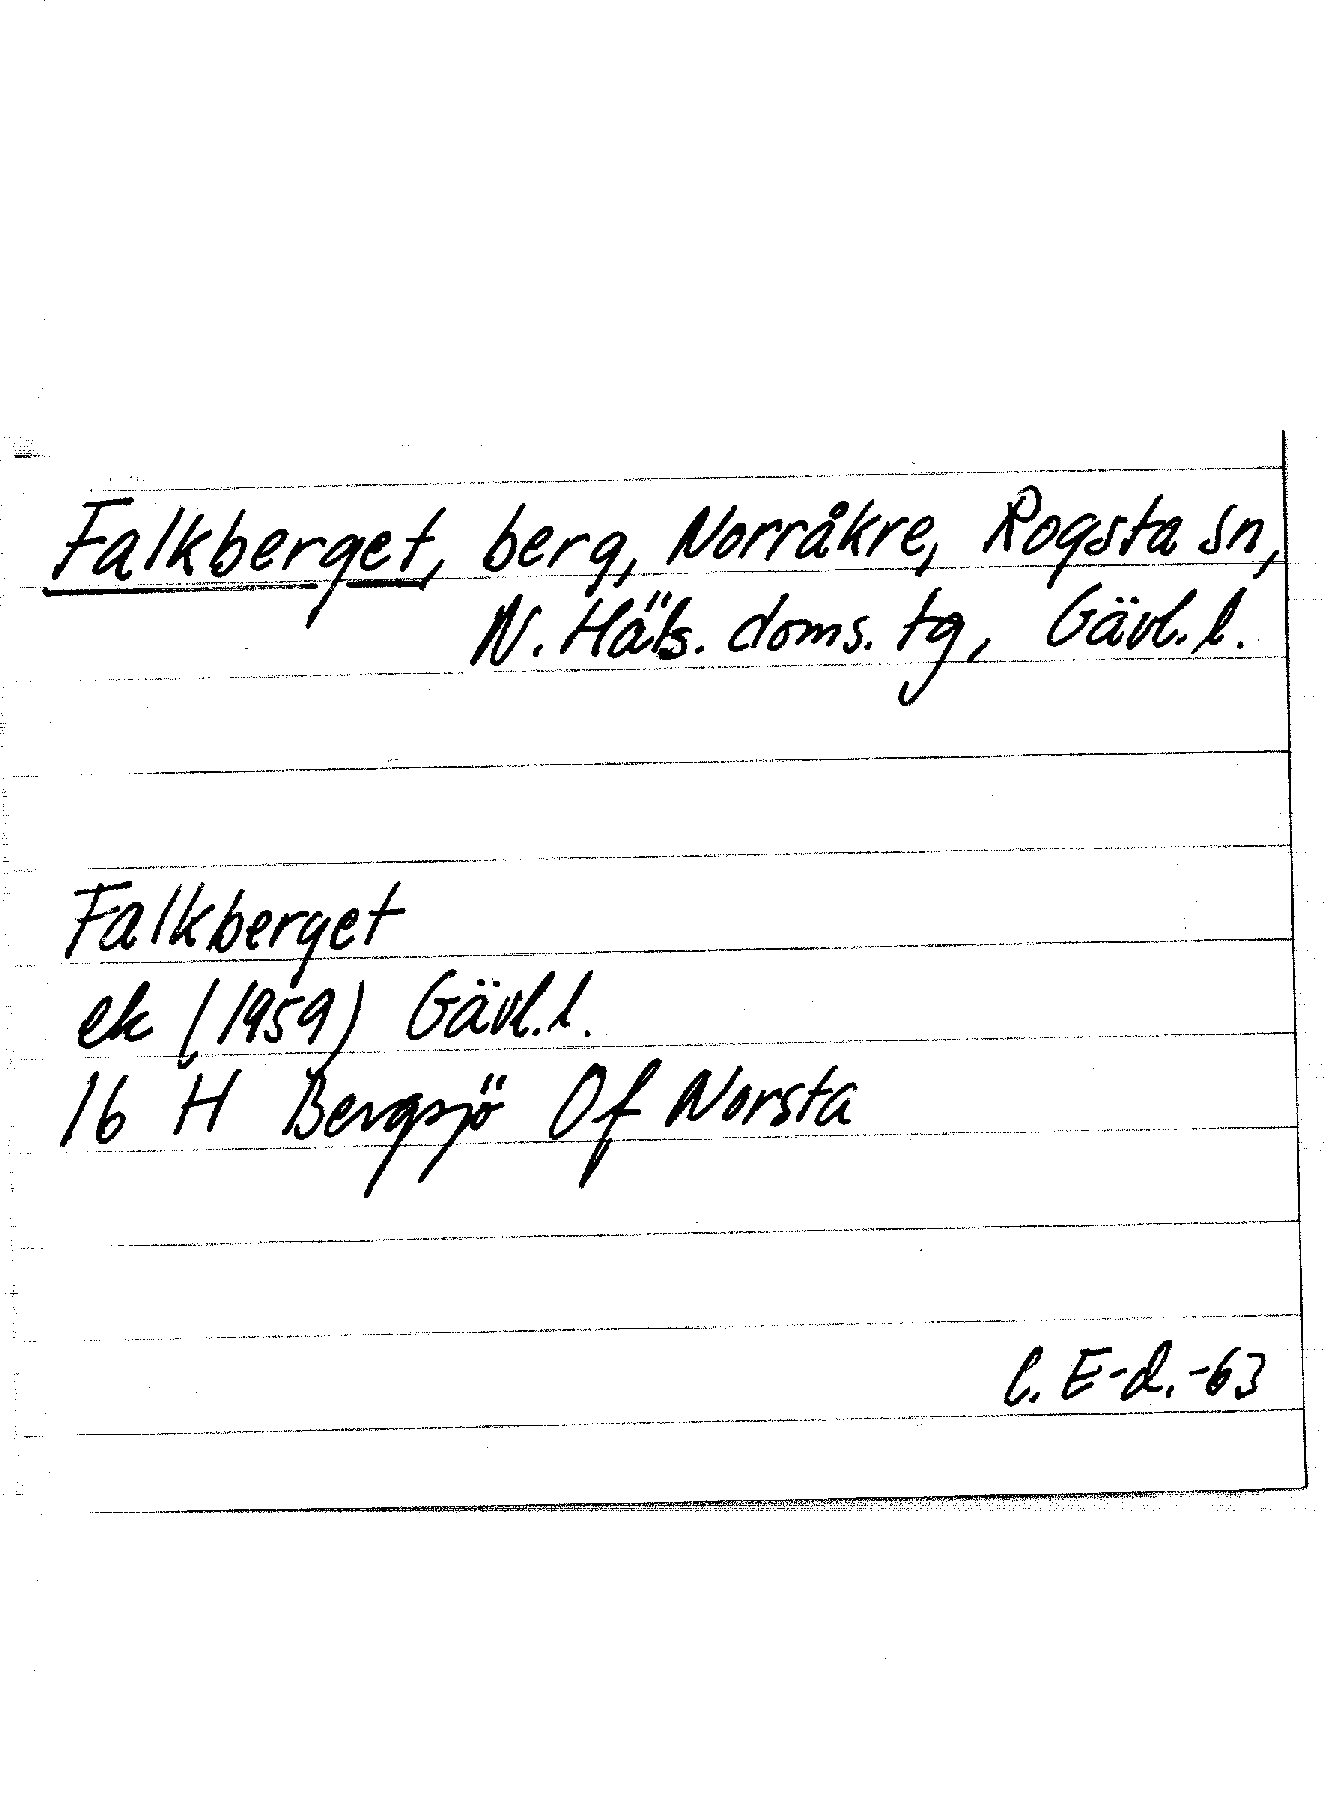 Falkberget, berg, Norråkre, Rogsta sn,
N. Häls. doms. tg, Gävl. l.
Falkberget
ek (1959) Gävl. l.
16 H Bergsjö Of Norsta
C. E-d. -63